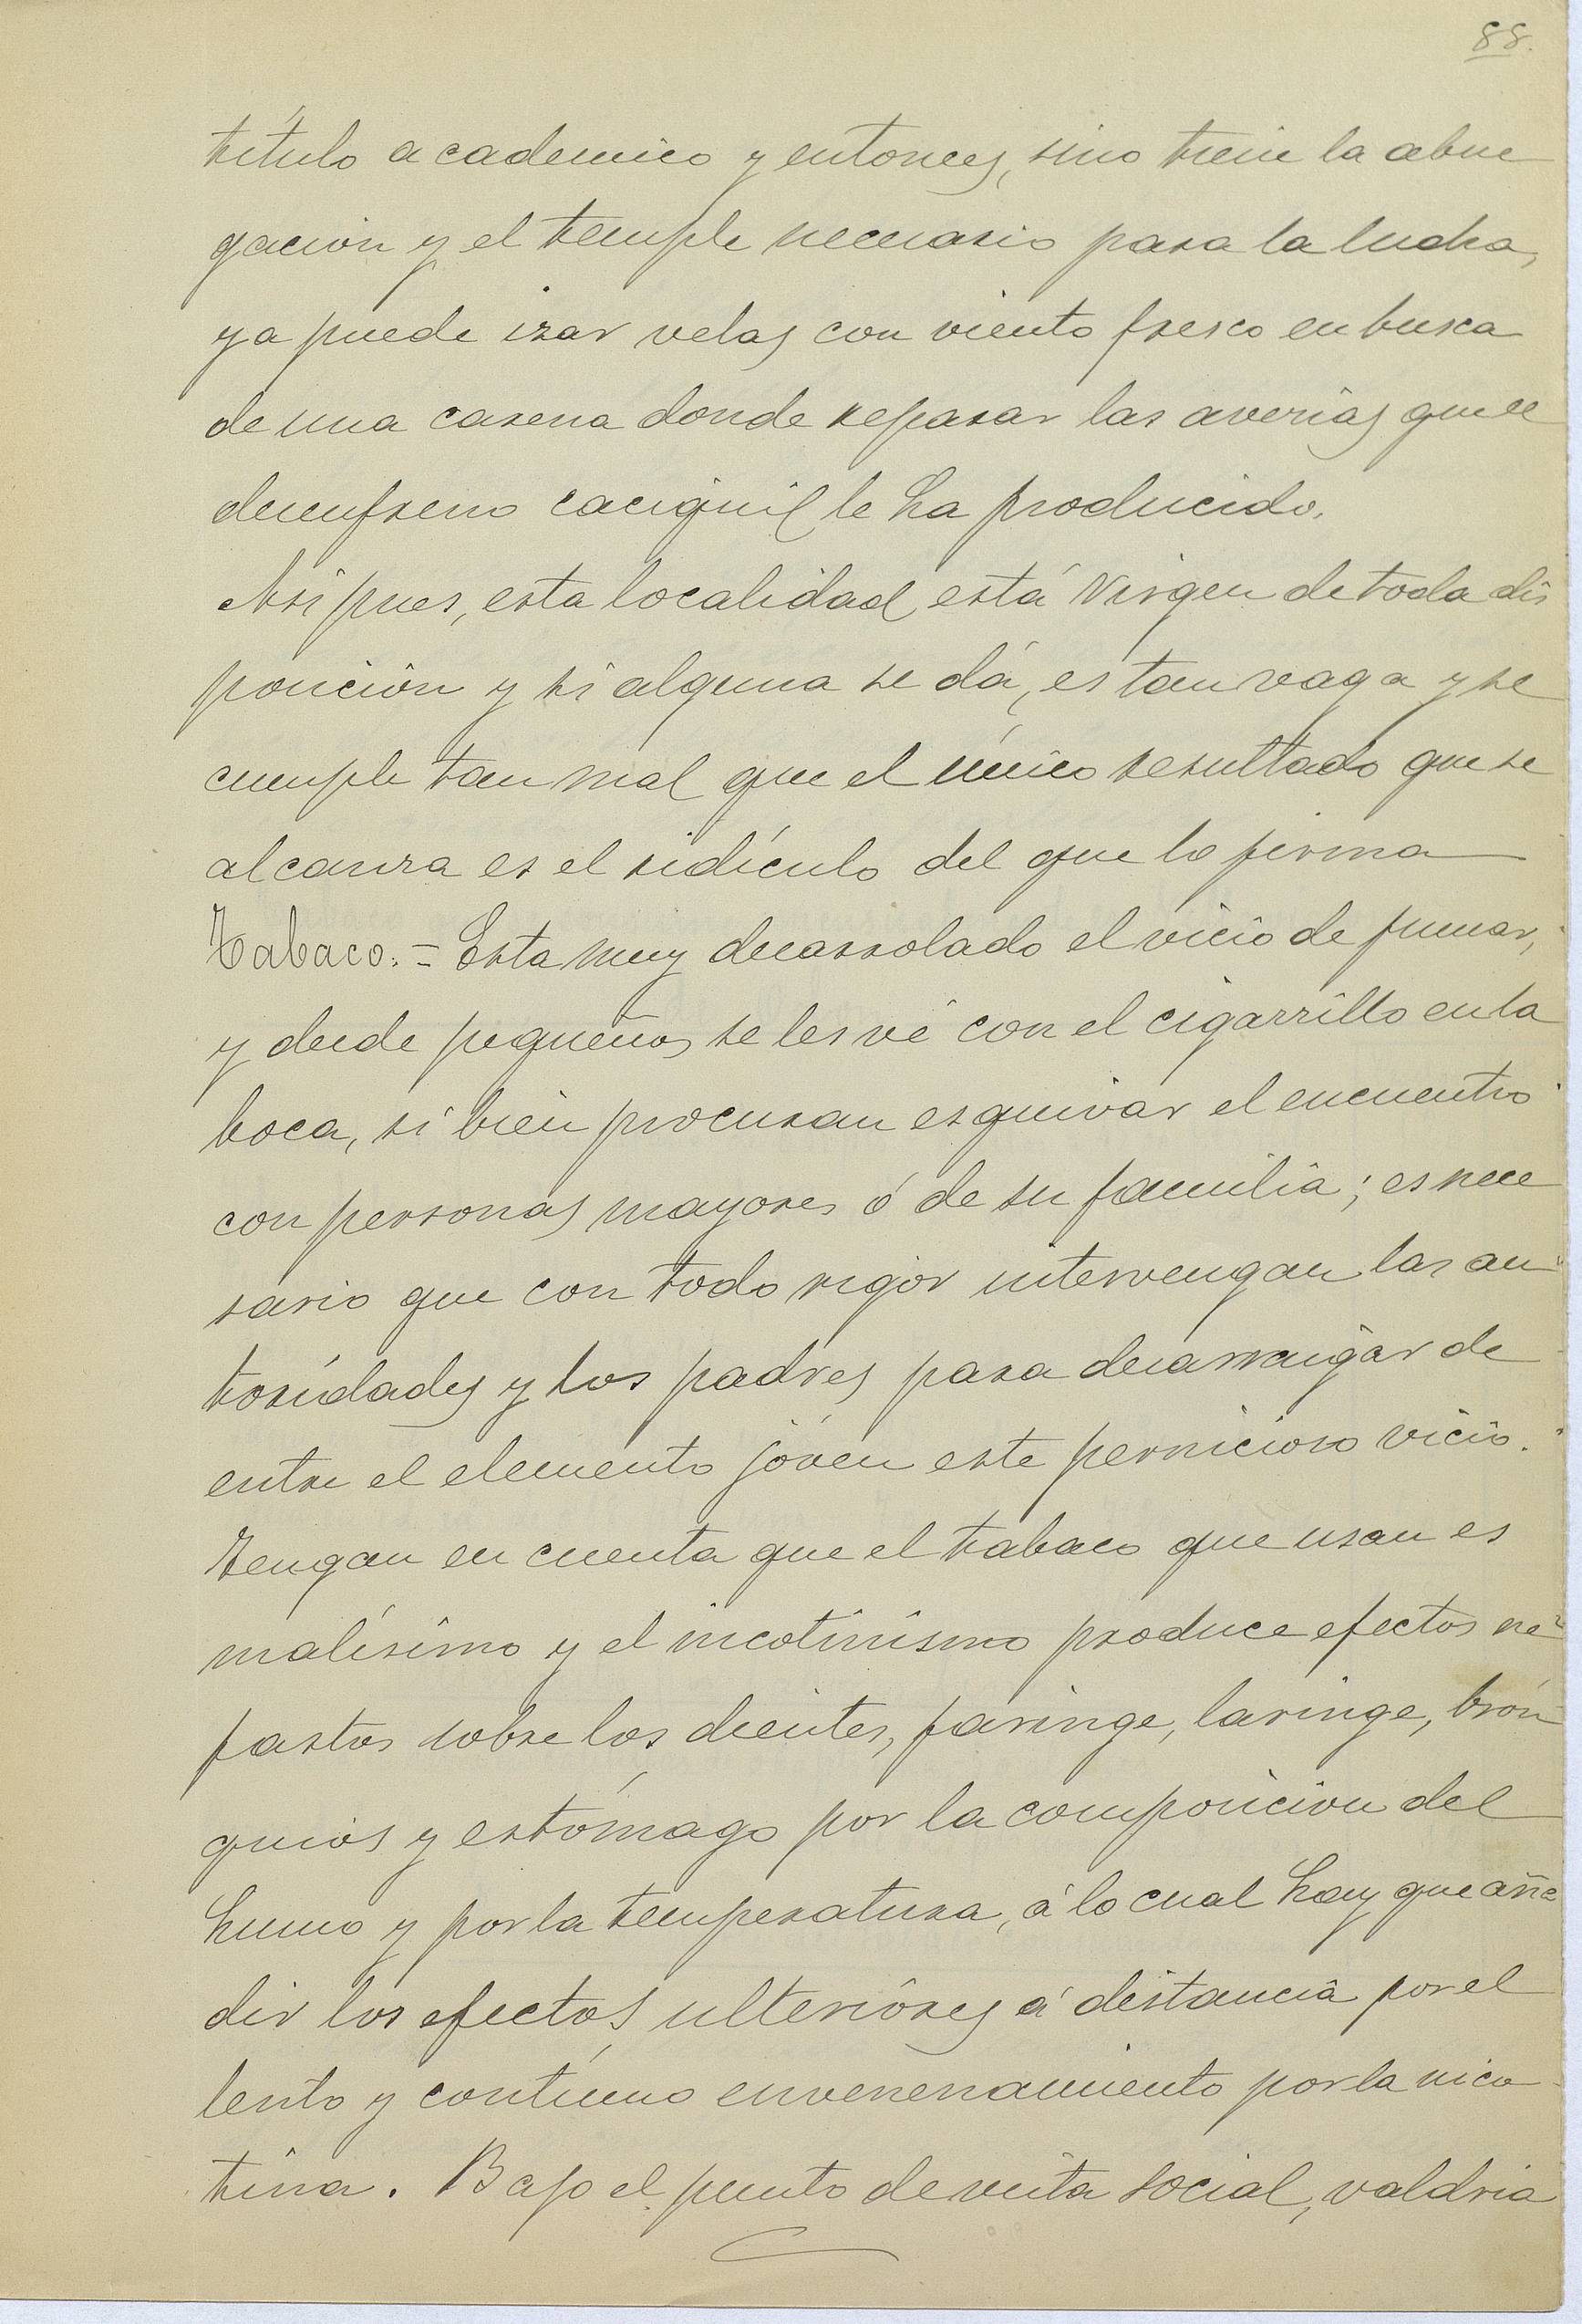 88.
título academico y entonces, sino tiene la abne
gación y el temple necesario para la lucha,
ya puede izar velas con viento fresco en busca
de una carena donde reparar las averias que el
desenfreno caciquil, le ha producido.
Asi pues, esta localidad, está Virgen de toda dis
posición y si alguna se dá, es tan vaga y se
cumple tan mal que el único resultado que se
alcanza es el ridículo del que lo firma
Tabaco. = Esta muy desarrolado el vicio de fumar,
y desde pequeños se les vé con el cigarrillo en la
boca, si bien procuran esquivar el encuentro
con personas mayores ó de su familia; es nece
sario que con todo rigor intervengan las au
toridades y los padres para desarraigar de
entre el elemento jóven este pernicioso vicio.
Tengan en cuenta que el tabaco que usan es
malísimo y el nicotinismo produce efectos ne
fastos sobre los dientes, faringe, laringe, brón
quios y estómago por la composicion del
humo y por la temperatura, á lo cual hay que aña
dir los efectos ulteriores á distancia por el
lento y contínuo envenenamiento por la nico
tina. Bajo el punto de vista social, valdria